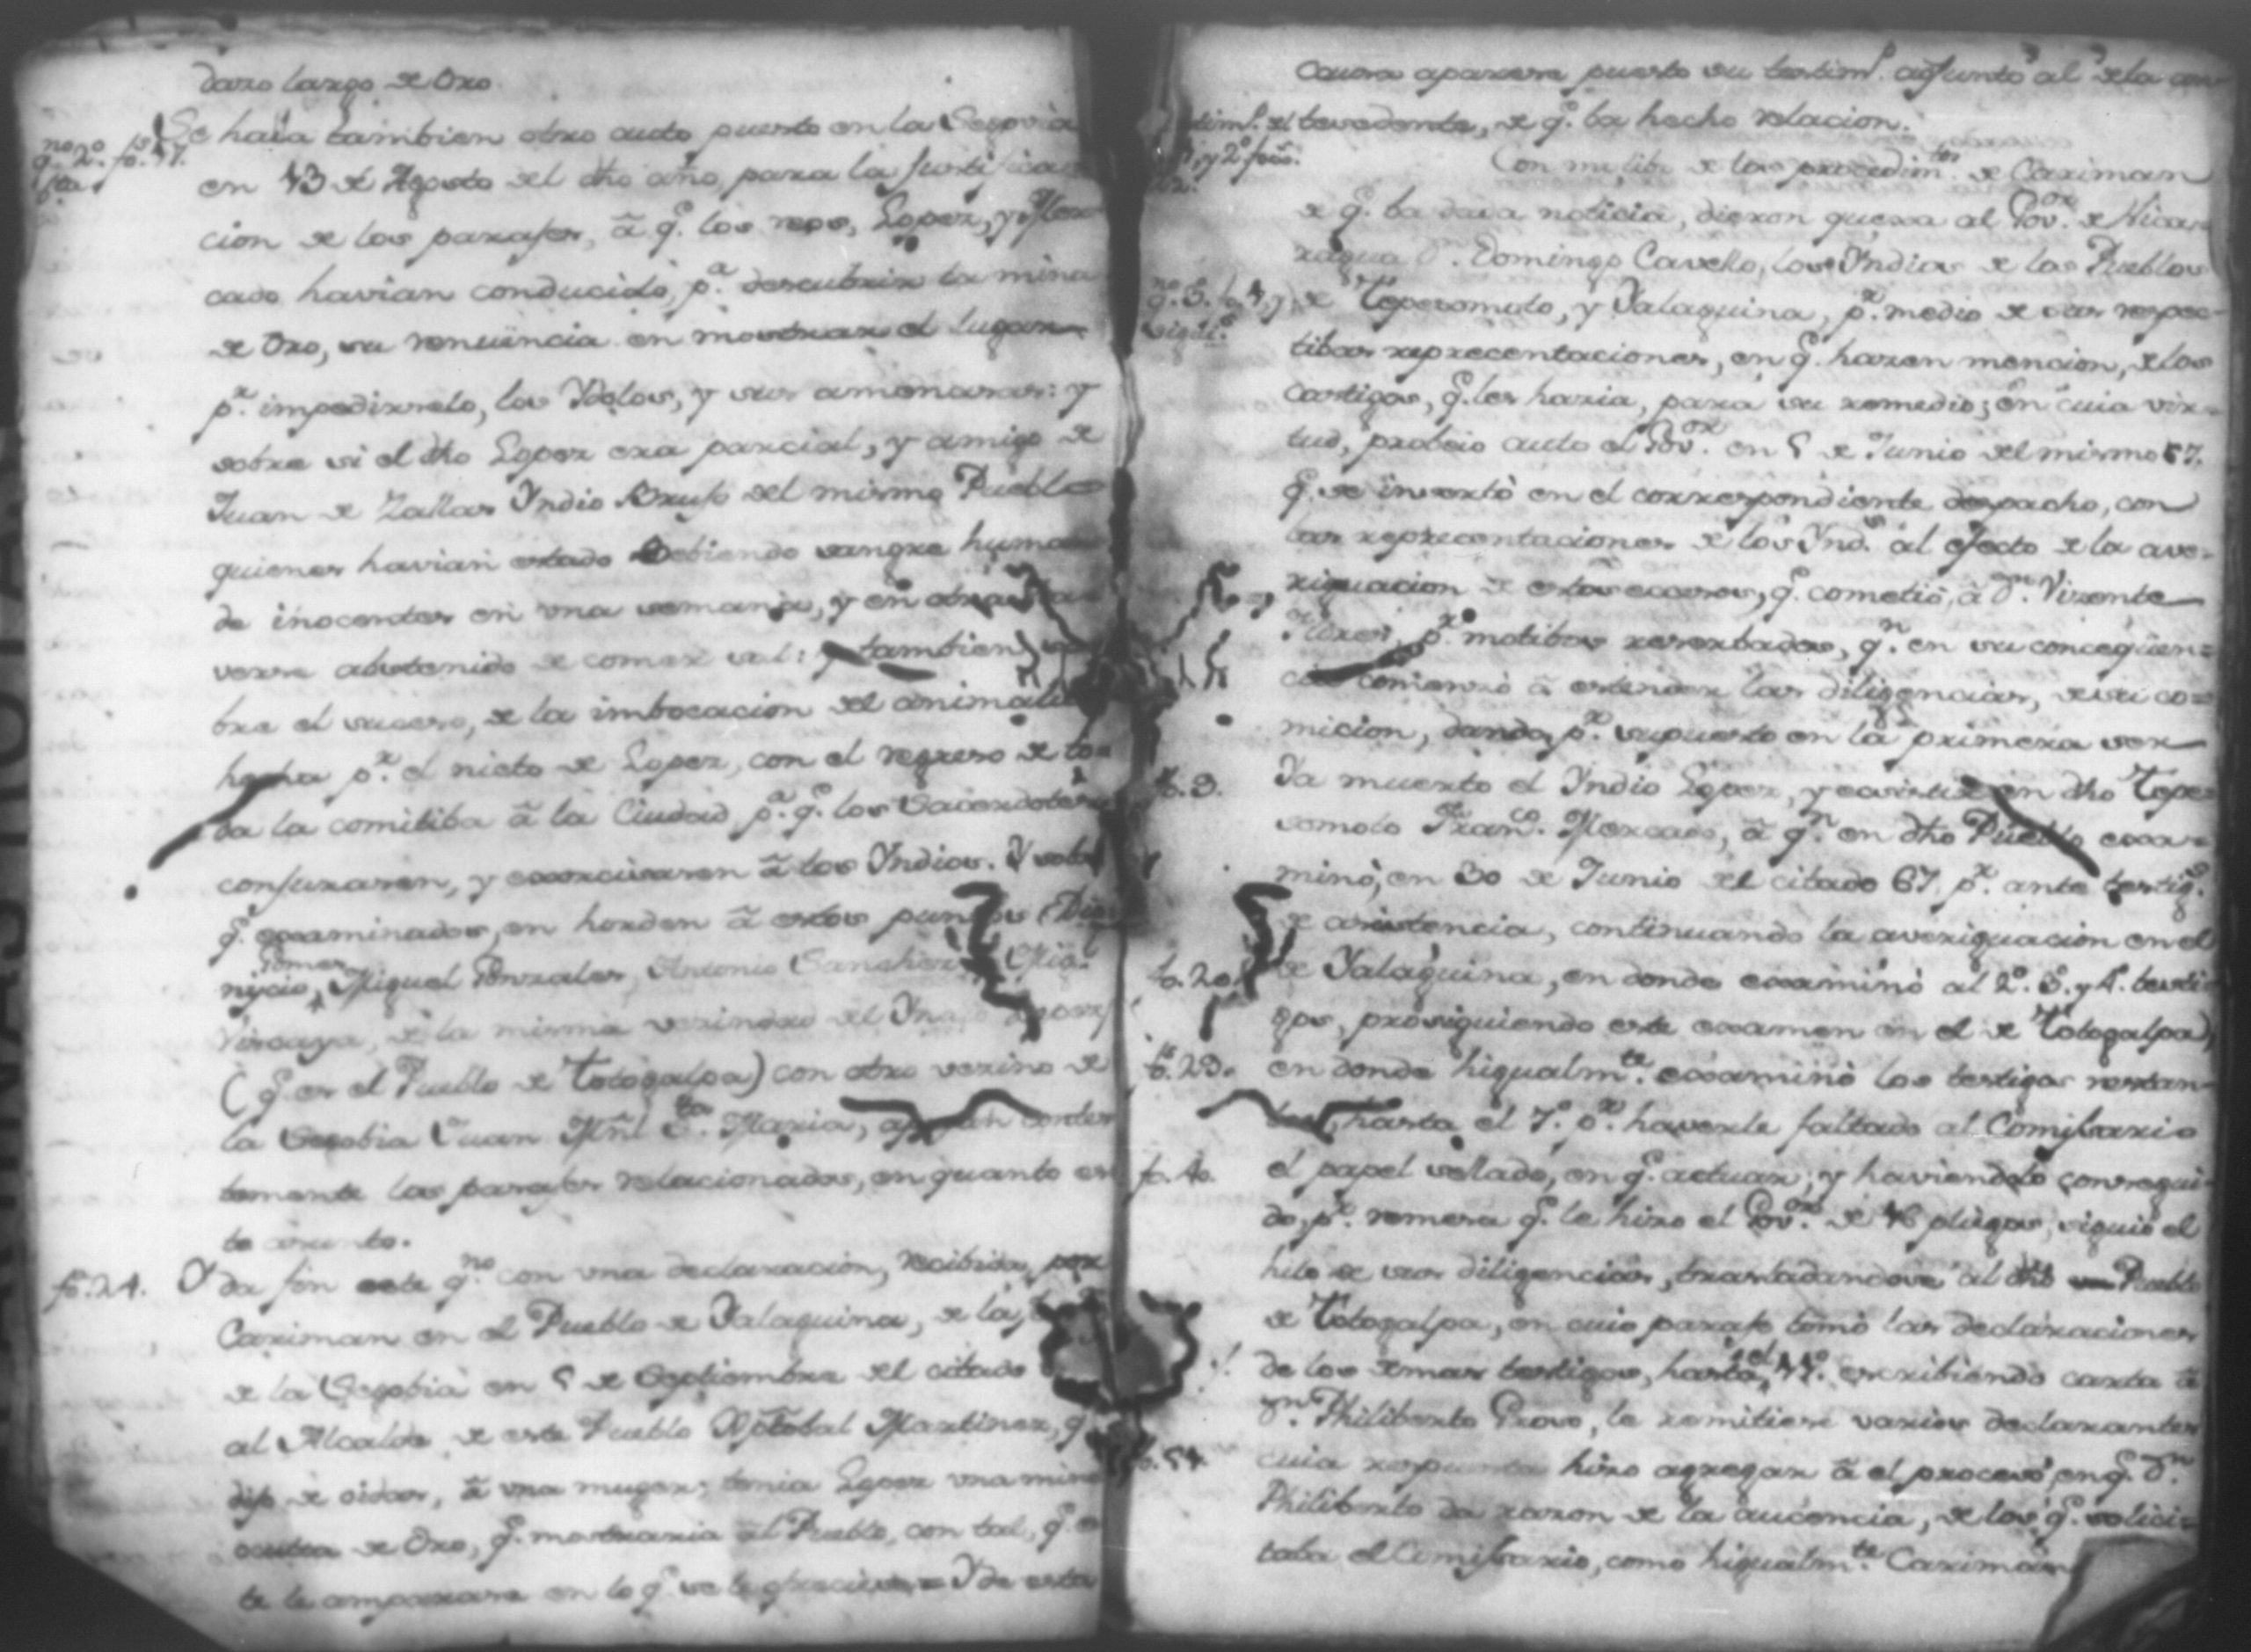 daxo largo de Oro.
qno 2º fo. 17.
Se haia tambien otro auto puesto en la Segovia
en 13 de Agosto del dho año, para la justifica
cion de los parajes, â q.e los reos, Lopez, y Mer
cado havian conducido, p.a descubrir la mina
de Oro, su renuencia en mostrar el lugar
p.r impedirselo, los Ydolos, y sus amenasas: y
sobre si el dho Lopez era parcial, y amigo de
Juan de Zallas Yndio Brujo del mismo Pueblo
quienes havian estado bebiendo sangre huma
de inocentes en una semana, y en otra
verse abstenido de comer sal: y tambien
bre el suceso, de la imbocacion del animal
hecha p.r el nieto de Lopez, con el regreso de to
da la comitiba â la Ciudad, p.a q.e los Sacerdotes
conjurasen, y exorcisasen â los Yndios. Y
q.e examinados, en horden â estos puntos (Dio
nicio Gomes, Miguel Gonzales, Antonio Sanches,
Viscaya, de la misma vezindad del
(q.e es el Pueblo de Totogalpa) con otro vezino de
la Segobia Juan Mñl S.ta Maria,
temente los parajes relacionados, en quanto es
te asunto.
fo. 24. Y da fin este q.no con una declaracion, recibida por
Cariman en el Pueblo de Yalaguina, de la
de la Segobia en 5 de Septiembre del citado
al Alcalde de este Pueblo Xptobal Martinez, q
dijo de oidas, â una muger, tenia Lopez una mina
oculta de Oro, q.e mostraria al Pueblo, con tal, q.e
te le amparase en lo q.e se le ofreciese = Y de esta
causa aparese puesto su testim.o adjunto al de la an
tecedente, de q.e ba hecho relacion.
Con de los procedim.tos de Cariman
de q.e ba dada noticia, dieron quexa al Gov.or de Nica
ragua D.n Domingo Cavello, los Yndios de los Pueblos
qno 3. de Teposomoto, y Yalaguina, p.r medio de sus respec
tibas reprecentaciones, en q.e hazen mencion, de los
castigos, q.e les hazia, para su remedio; en cuia vir
tud, probeio auto el Gov.or en 5 de Junio del mismo 67.
q.e se insertò en el correspondiente despacho, con
las reprecentaciones de los Ynd.s al efecto de la ave
riguacion de estos excesos, q.e cometió, â D.n Vizente
p.r motibos reserbados, q.n en su conceqüen
cia comenzò â estender las diligencias, de su co
micion, dando, p.r supuesto en la primera ser
fo. 3. Ya muerto el Yndio Lopez, y existir en dho Tepe
somoto Fran.co Mercado, â q.n en dho Pueblo exa
minò, en 30 de Junio del citado 67. p.r ante testig.s
de asistencia, continuando la averiguacion en el
fo. 20. de Yalaguina, en donde examinò al 2º. 3. y 4º. testi
gos, prosiguiendo este examen en el de Totogalpa,
fo. 23. en donde higualm.te examinò los testigos restan
tes, hasta el 7º. p.r haverle faltado al Comisario
fo. 40. el papel sellado, en q.e actuar; y haviendolo conseguí
do, p.r remesa q.e le hizo el Gov.or de 16 pliegos, siguió el
hilo de sus diligencias, trasladandose al dho Pueblo
de Totogalpa, en cuio paraje tomò las declaraciones
de los demas testigos, hasta el escribiendo carta â
D.n Philiberto Provo, le remitiese varios declarantes
cuia respuesta hizo agregar â el proceso, en q.e D.n
Philiberto da razon de la aucencia, de los q.e solici
taba el Comisario, como higualm.te Cariman